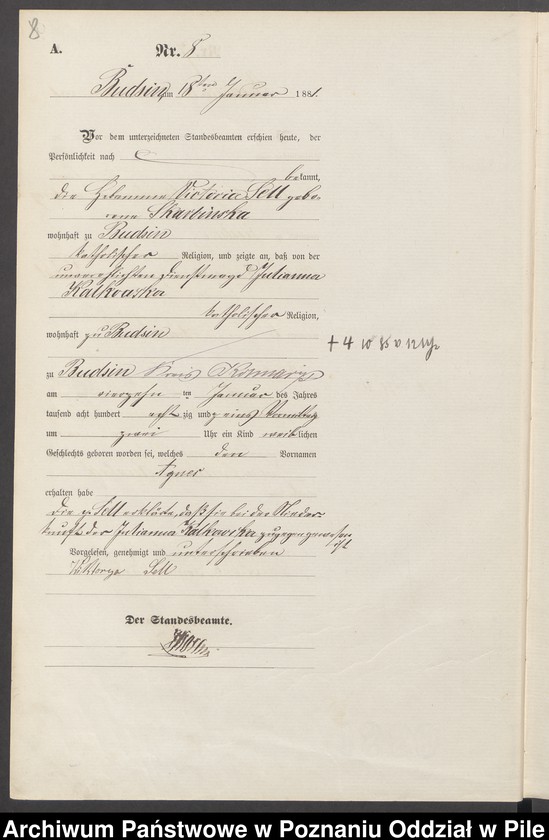 8
A.
Nr. 8
Budsin, am 18ten Januar 1881.
Vor dem unterzeichneten Standesbeamten erschien heute, der
Persönlichkeit nach
bekannt,
die Hebamme Victoria Sell gebo-
rene Skarbinska
wohnhaft zu Budsin
katholischer Religion, und zeigte an, daß von der
unverehelichten Dienstmagd Julianna
Kalkowska
katholischer Religion,
wohnhaft zu Budsin
zu Budsin Kreis
am vierzehn ten Januar des Jahres
tausend acht hundert acht zig und eins Vormittag
um zwei Uhr ein Kind weib lichen
Geschlechts geboren worden sei, welches den Vornamen
Agnes
erhalten habe
die p. Sell erklärte, daß sie bei der Nieder-
kunft der Julianna Kalkowska zugegen gewesen
ist
Vorgelesen, genehmigt und unterschrieben
Viktorya Sell
Der Standesbeamte.
Archiwum Państwowe w Poznaniu Oddział w Pile